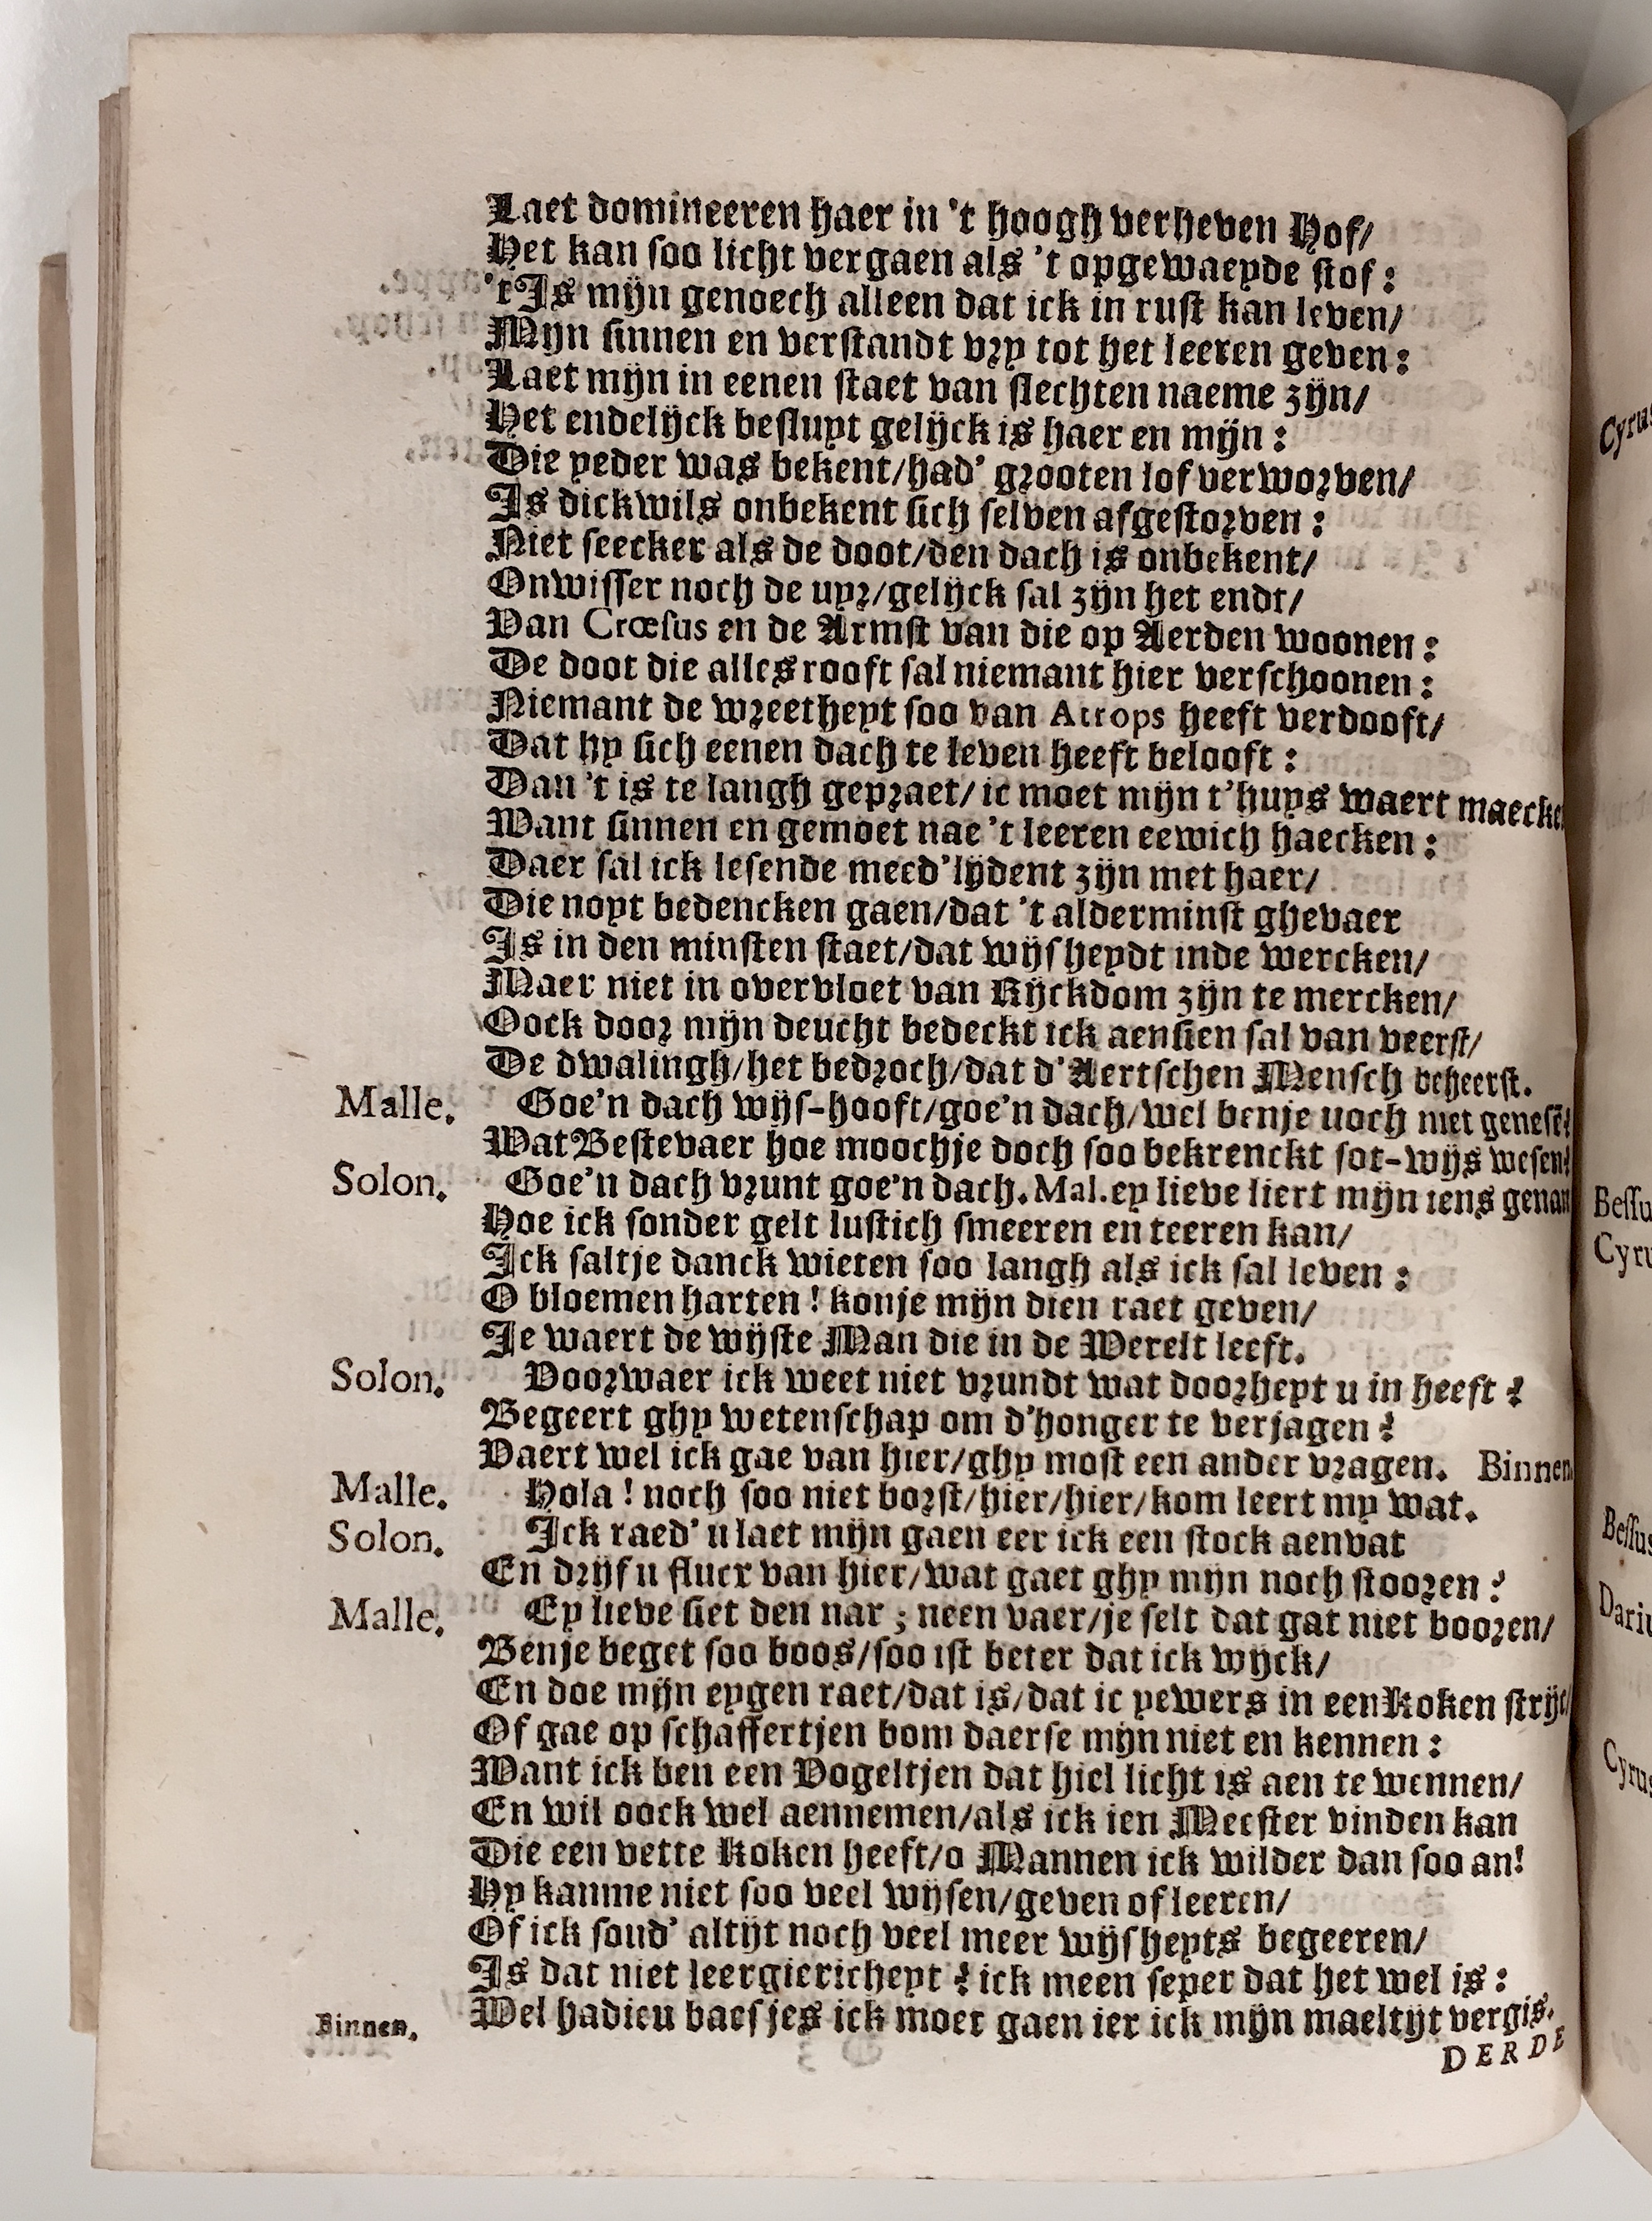 Laet domineeren haer in 't hoogh verheven Hof/
Het kan soo licht vergaen als 't opgewaeyde stof:
't Is mijn genoech alleen dat ick in rust kan leven/
Mijn sinnen en verstandt vry tot het leeren geven:
Laet mijn in eenen staet van slechten naeme zijn/
Het endelijck besluyt gelijck is haer en mijn:
Die yeder was bekent/had' grooten lof verworven/
Is dickwils onbekent sich selven afgestorven:
Niet seecker als de doot/den dach is onbekent/
Onwisser noch de uyr/gelijck sal zijn het endt/
Van Crœsus en de Armst van die op Aerden woonen:
De doot die alles rooft sal niemant hier verschoonen:
Niemant de wreetheyt soo van Atrops heeft verdooft/
Dat hy sich eenen dach te leven heeft belooft:
Dan 't is te langh gepraet/ ic moet mijn t'huys waert
Want sinnen en gemoet nae 't leeren eewich haecken:
Daer sal ick lesende meed'lijdent zijn met haer/
Die noyt bedencken gaen/dat 't alderminst ghevaer
Is in den minsten staet/dat wijsheydt inde wercken/
Maer niet in overvloet van Rijckdom zijn te mercken/
Oock door mijn deucht bedeckt ick aensien sal van veerst/
De dwalingh/het bedroch/dat d'Aertschen Mensch beheerst.
Malle. Goe'n dach wijs-hooft/goe'n dach/wel benje noch niet genesē?
Wat Bestevaer hoe moochje doch soo bekrenckt sot-wijs wesen?
Solon. Goe'n dach vrunt goe'n dach. Mal. ey lieve liert mijn iens
Hoe ick sonder gelt lustich smeeren en teeren kan/
Ick saltje danck wieten soo langh als ick sal leven:
O bloemen harten! konje mijn dien raet geven/
Je waert de wijste Man die in de Werelt leeft.
Solon. Voorwaer ick weet niet vrundt wat doorheyt u in heeft?
Begeert ghy wetenschap om d'honger te verjagen?
Vaert wel ick gae van hier/ghy most een ander vragen. Binnen.
Malle. Hola! noch soo niet borst/hier/hier/kom leert my wat.
Solon. Ick raed' u laet mijn gaen eer ick een stock aenvat
En drijf u fluex van hier/wat gaet ghy mijn noch stooren?
Malle. Ey lieve siet den nar; neen vaer/je selt dat gat niet booren/
Benje beget soo boos/soo ist beter dat ick wijck/
En doe mijn eygen raet/dat is/dat ic yewers in een Koken strijc/
Of gae op schaffertjen bom daerse mijn niet en kennen:
Want ick ben een Vogeltjen dat hiel licht is aen te wennen/
En wil oock wel aennemen/als ick ien Meester vinden kan
Die een vette Koken heeft/o Mannen ick wilder dan soo an!
Hy kanme niet soo veel wijsen/geven of leeren/
Of ick soud' altijt noch veel meer wijsheyts begeeren/
Is dat niet leergiericheyt? ick meen seper dat het wel is:
Binnen. Wel hadieu baesjes ick moet gaen ier ick mijn maeltijt vergis.
DERDE
Cyrus
Bessu
Cyru
Bessus
Dariu
Cyrus